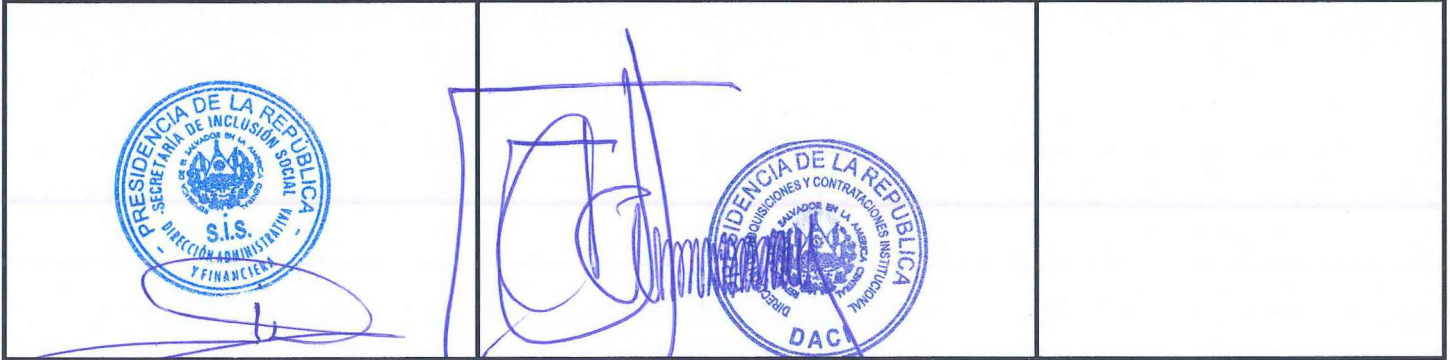 PRESIDENCIA DE LA REPÚBLICA
SECRETARÍA DE INCLUSIÓN SOCIAL
REPÚBLICA DE EL SALVADOR EN LA AMERICA CENTRAL
S.I.S.
DIRECCIÓN ADMINISTRATIVA
Y FINANCIERA
SIDENCIA DE LA REPÚBLICA
DIREC
QUISICIONES Y CONTRATACIONES INSTITUCIONAL
SALVADOR EN LA AMERICA CENTRAL
DACI